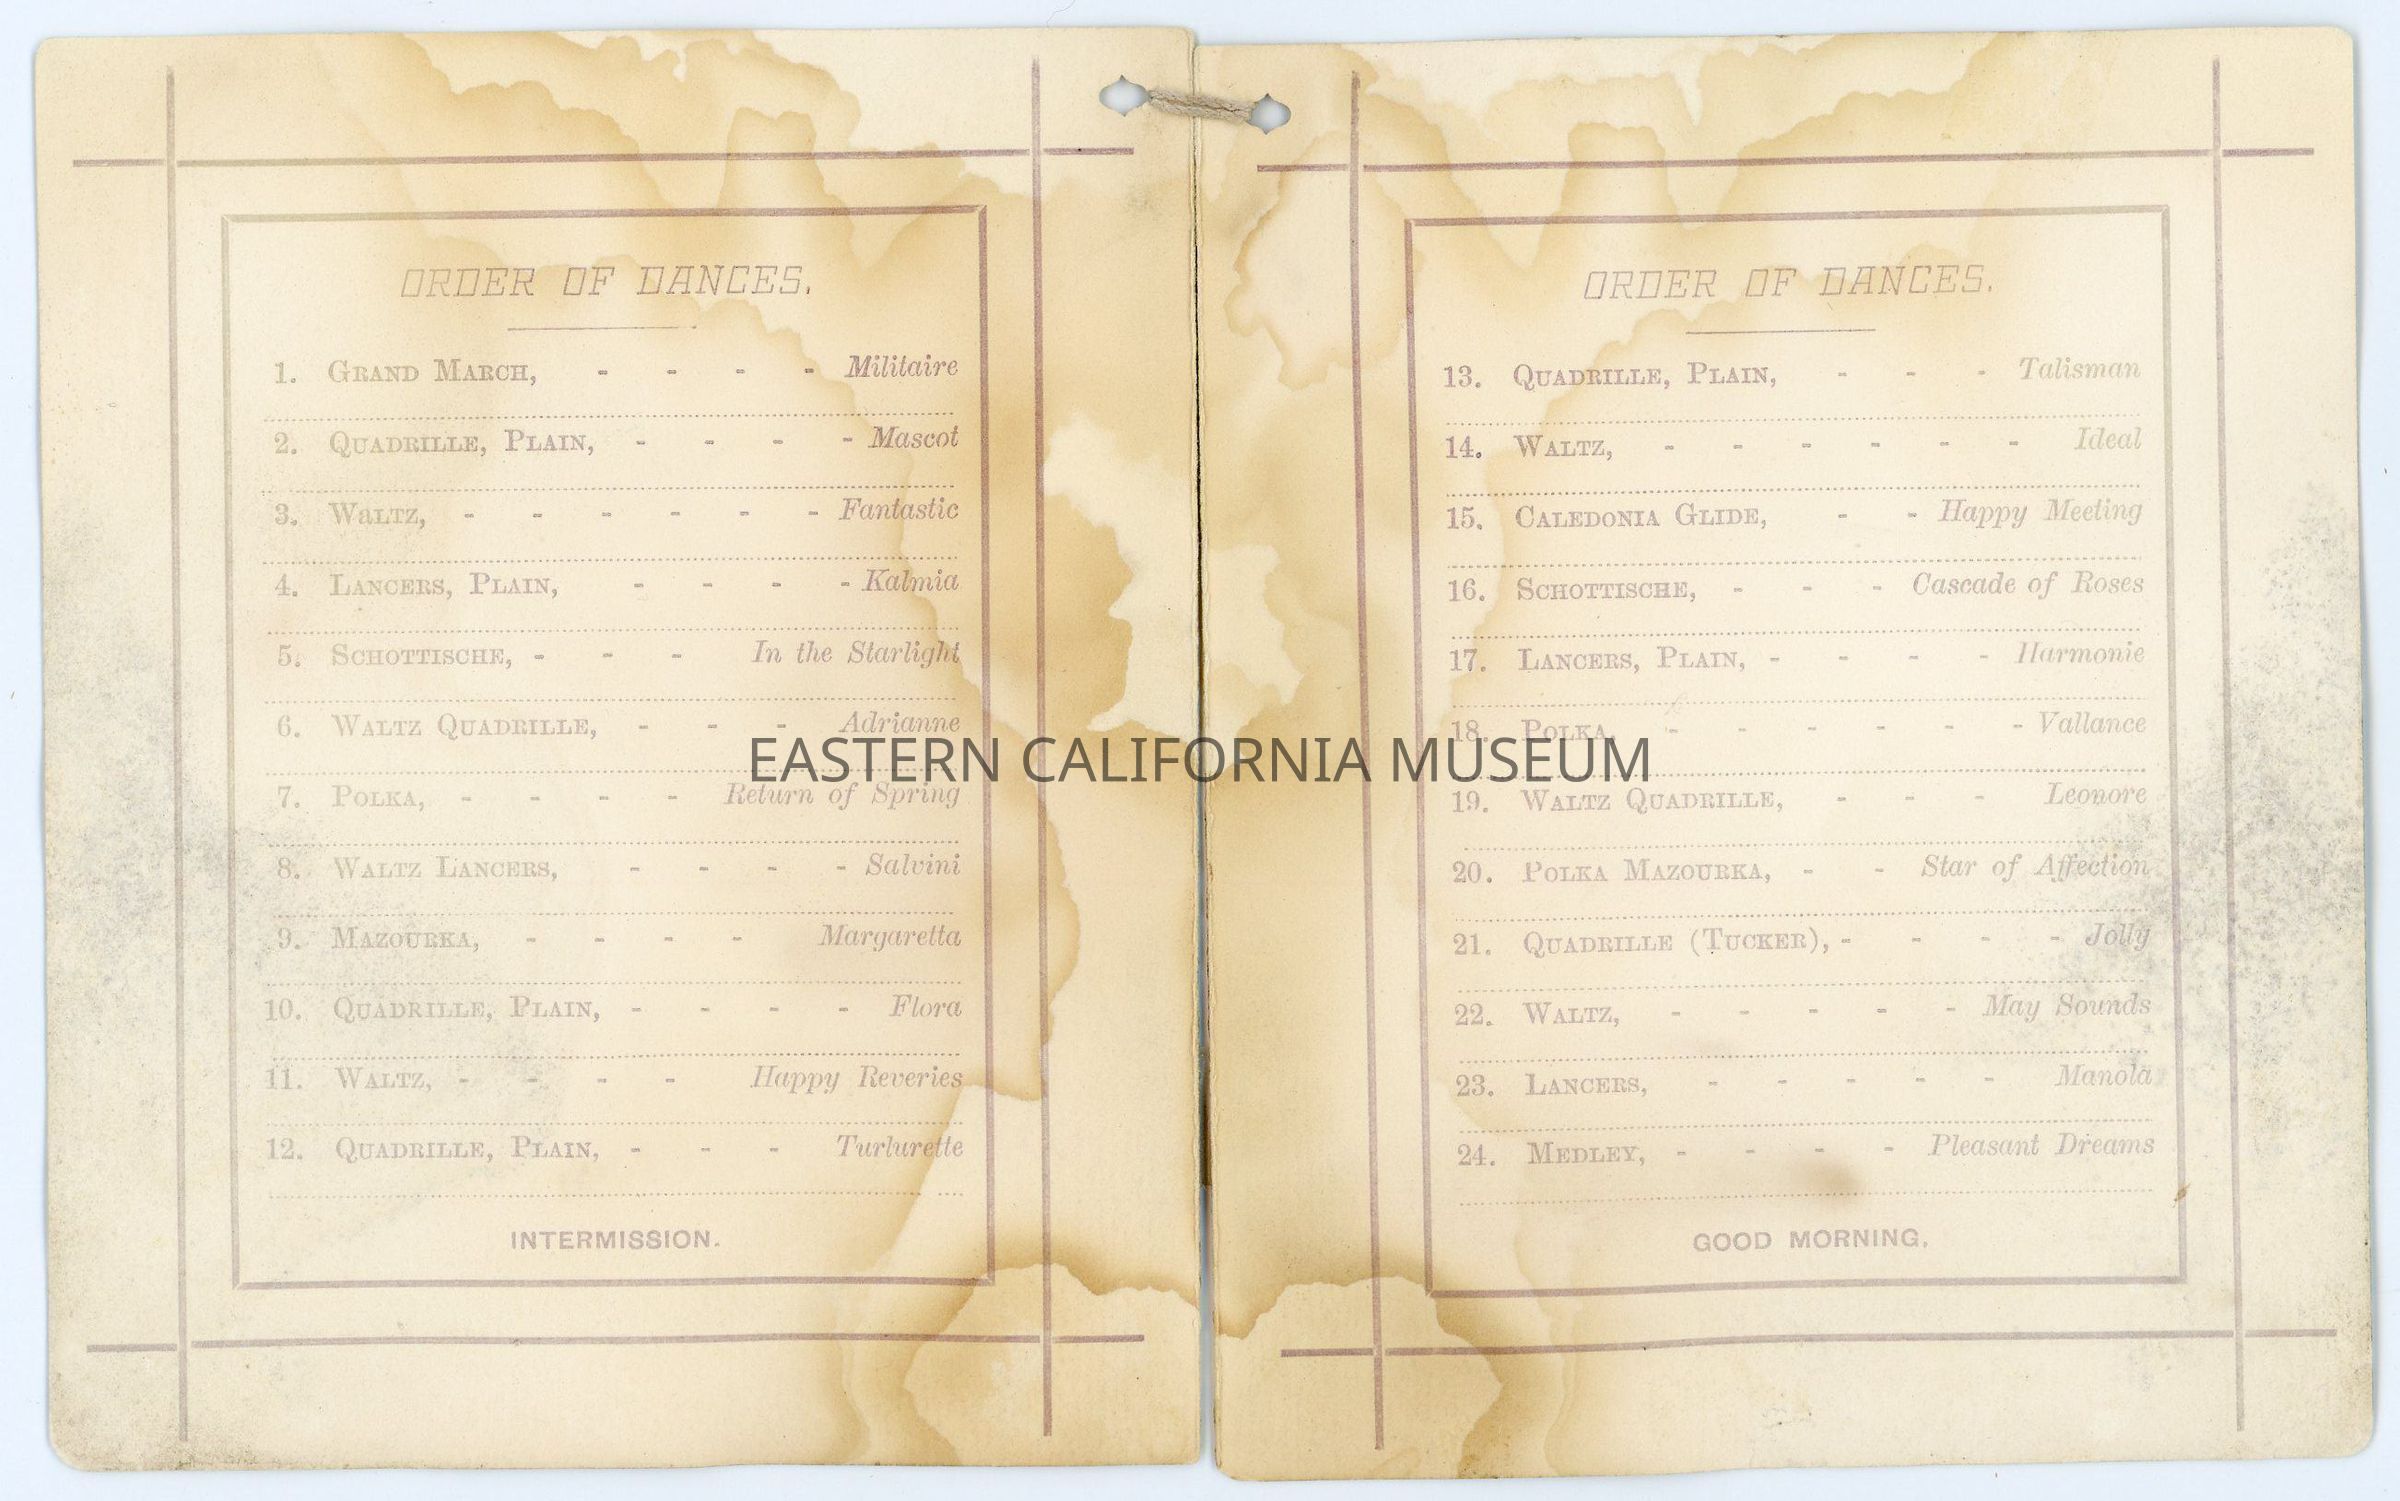 ORDER OF DANCES.
1. GRAND MARCH, - - - - Militaire
2. QUADRILLE, PLAIN, - - - - Mascot
3. WALTZ, - - - - - - Fantastic
4. LANCERS, PLAIN, - - - - Kalmia
5. SCHOTTISCHE, - - - In the Starlight
6. WALTZ QUADRILLE, - - - Adrianne
7. POLKA, - - - - Return of Spring
8. WALTZ LANCERS, - - - - Salvini
9. MAZOURKA, - - - - Margaretta
10. QUADRILLE, PLAIN, - - - - Flora
11. WALTZ, - - - - Happy Reveries
12. QUADRILLE, PLAIN, - - - Turlurette
INTERMISSION.
ORDER OF DANCES.
13. QUADRILLE, PLAIN, - - - Talisman
14. WALTZ, - - - - - - Ideal
15. CALEDONIA GLIDE, - - Happy Meeting
16. SCHOTTISCHE, - - - Cascade of Roses
17. LANCERS, PLAIN, - - - - Harmonie
18. POLKA, - - - - - - Vallance
19. WALTZ QUADRILLE, - - - Leonore
20. POLKA MAZOURKA, - - Star of Affection
21. QUADRILLE (TUCKER), - - - - Jolly
22. WALTZ, - - - - - May Sounds
23. LANCERS, - - - - - Manola
24. MEDLEY, - - - - Pleasant Dreams
GOOD MORNING.
EASTERN CALIFORNIA MUSEUM